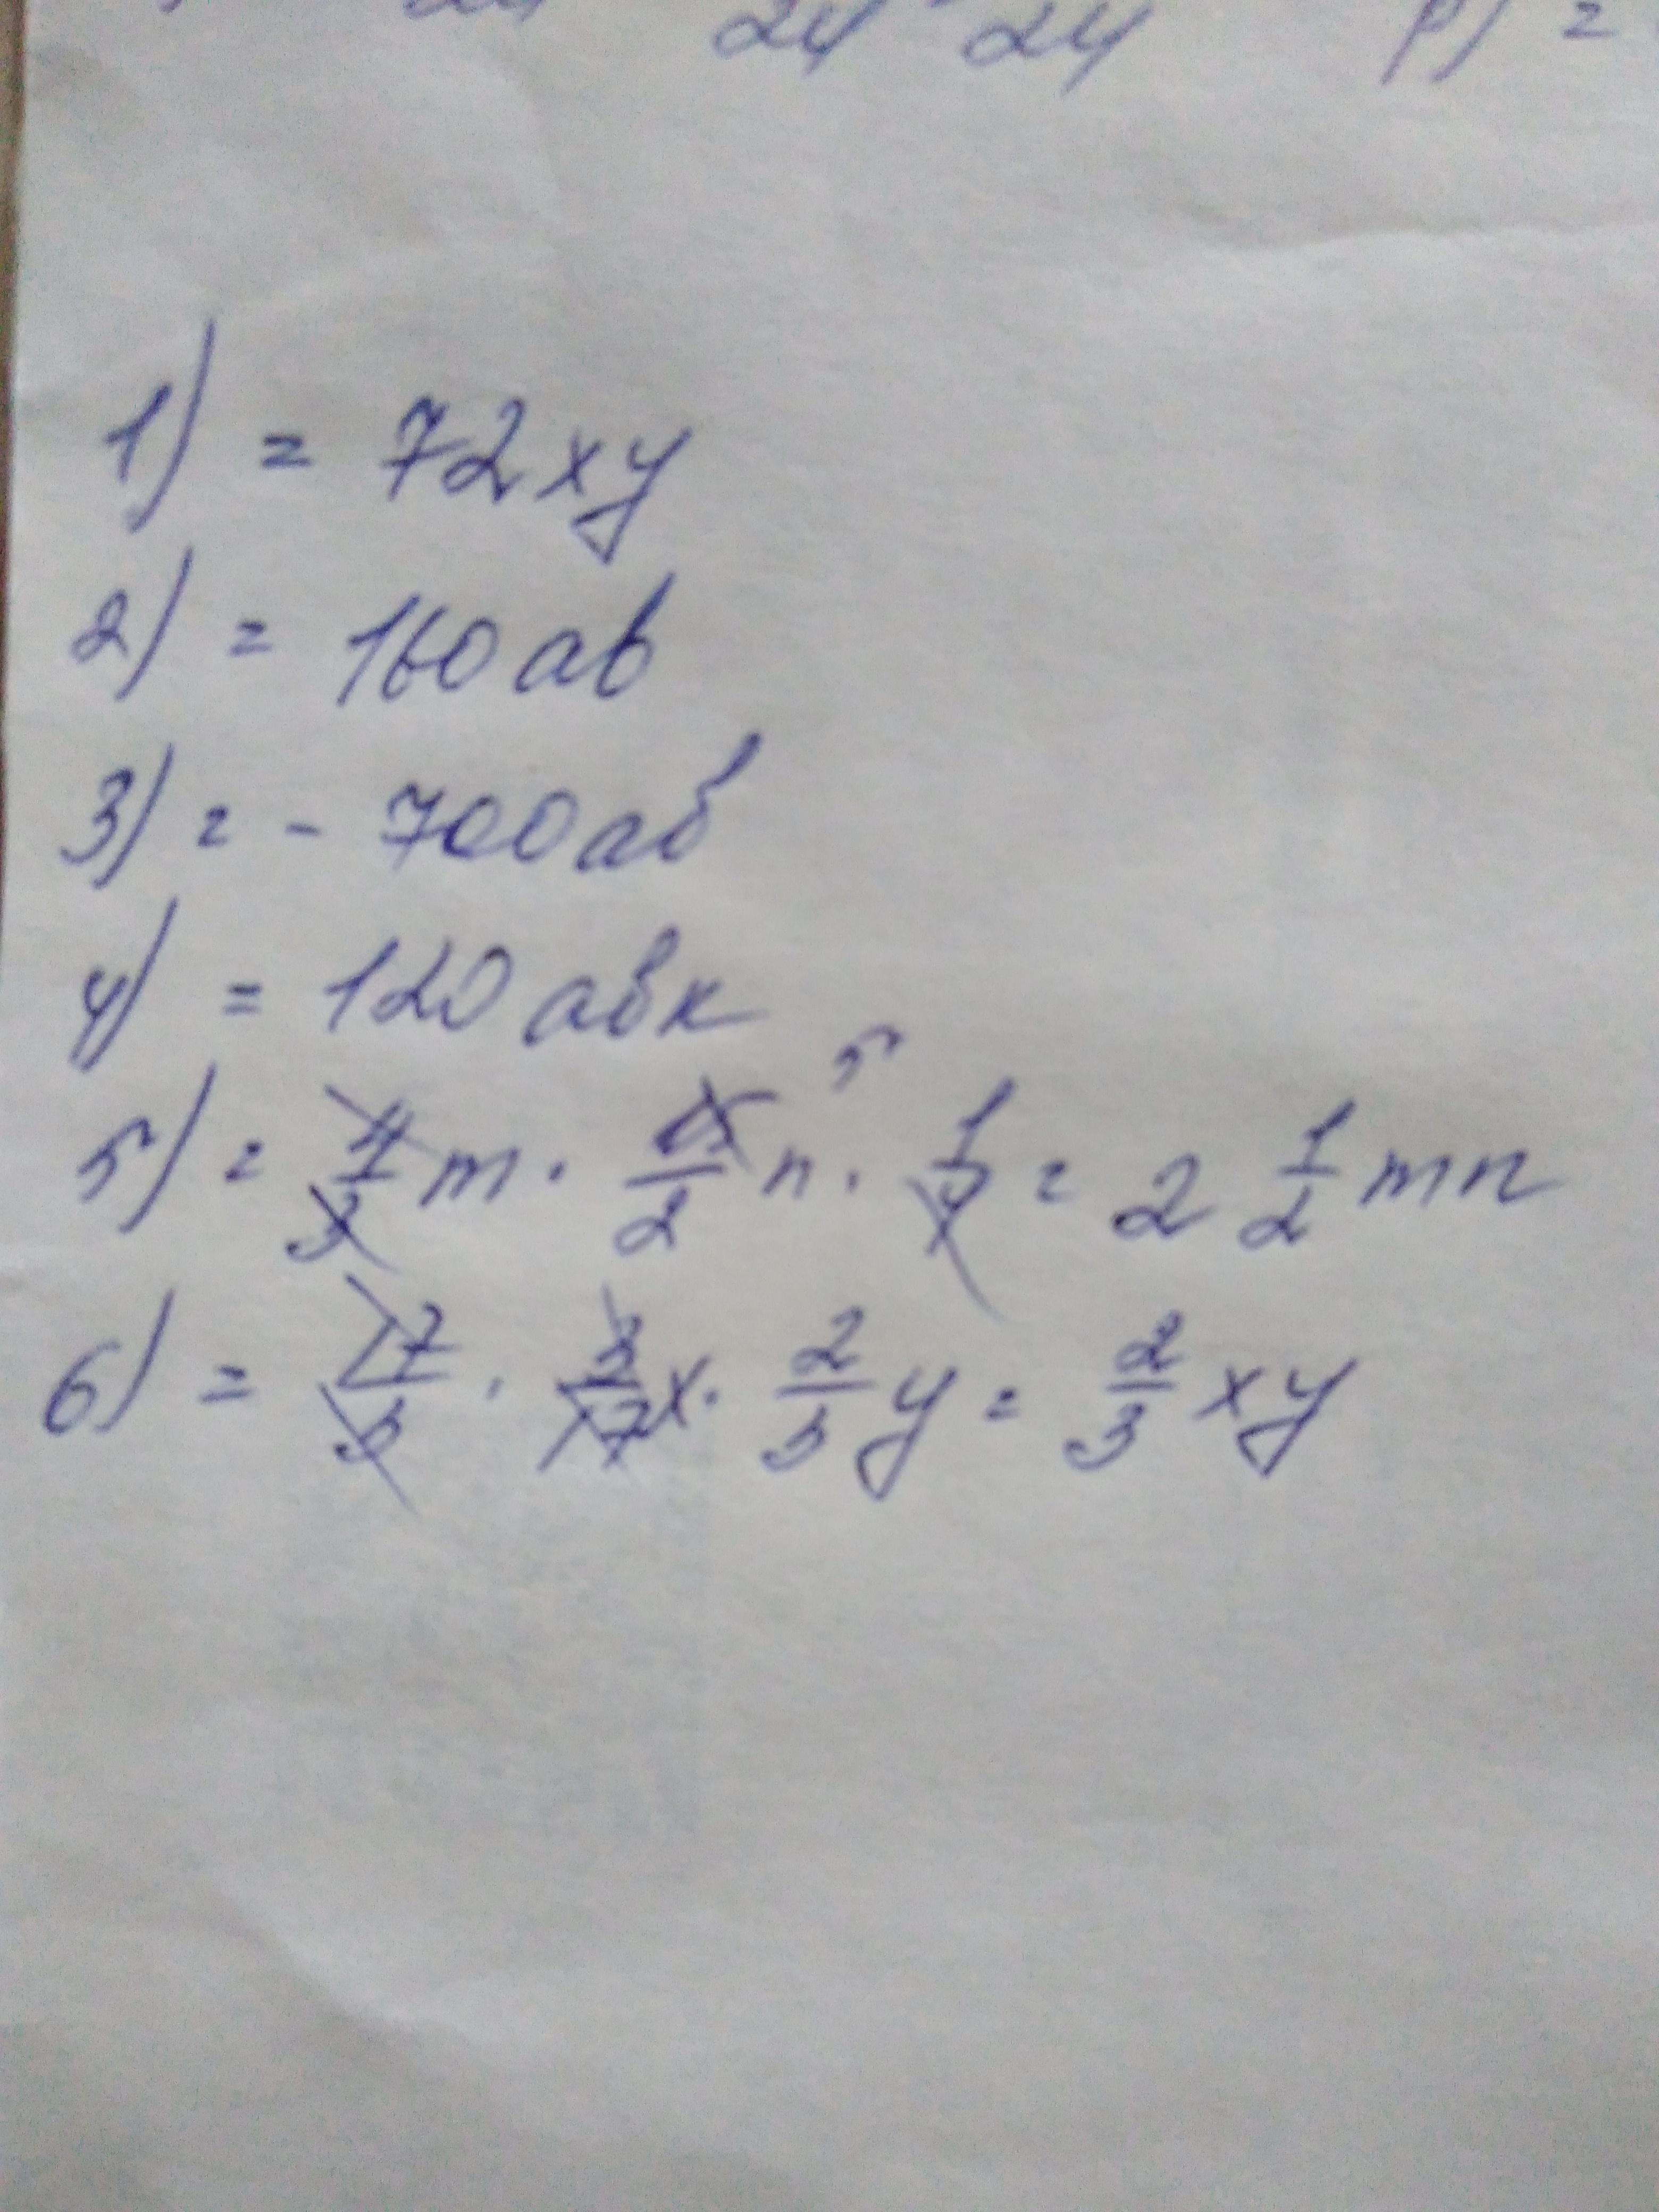 24 24 р) =
1) = 72xy
2) = 160ab
3) = - 700ab
4) = 120abk
5) = 4/3 m · 15/2 n · 1/4 = 2 1/2 mn
5
6) = 17/3 · 3/17 x · 2/3 y = 2/3 xy